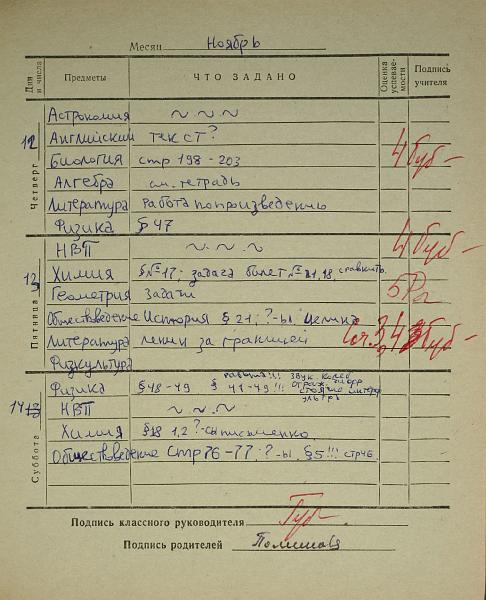 Месяц Ноябрь
Дни и числа Предметы ЧТО ЗАДАНО Оценка успевае-мости Подпись учителя
Четверг 12
Астрономия ~ ~ ~
Английский текст?
Биология стр 198-203 4
Алгебра см. тетрадь
Литература Работа по произведению
Физика § 47
Пятница 13
НВП ~ ~ ~ 4
Химия § № 17; задача билет № 21,18, сравнить.
Геометрия Задачи 5
Обществоведение История § 21; ?-ы; целина
Литература Ленин за границей Соч. 3/4
Физкультура
Суббота 14
Физика § 48-49 §
НВП ~ ~ ~
Химия §18 1,2 ?-сы письменно
Обществоведение Стр 76-77; ?-ы, §5!!! стр46
Подпись классного руководителя
Подпись родителей